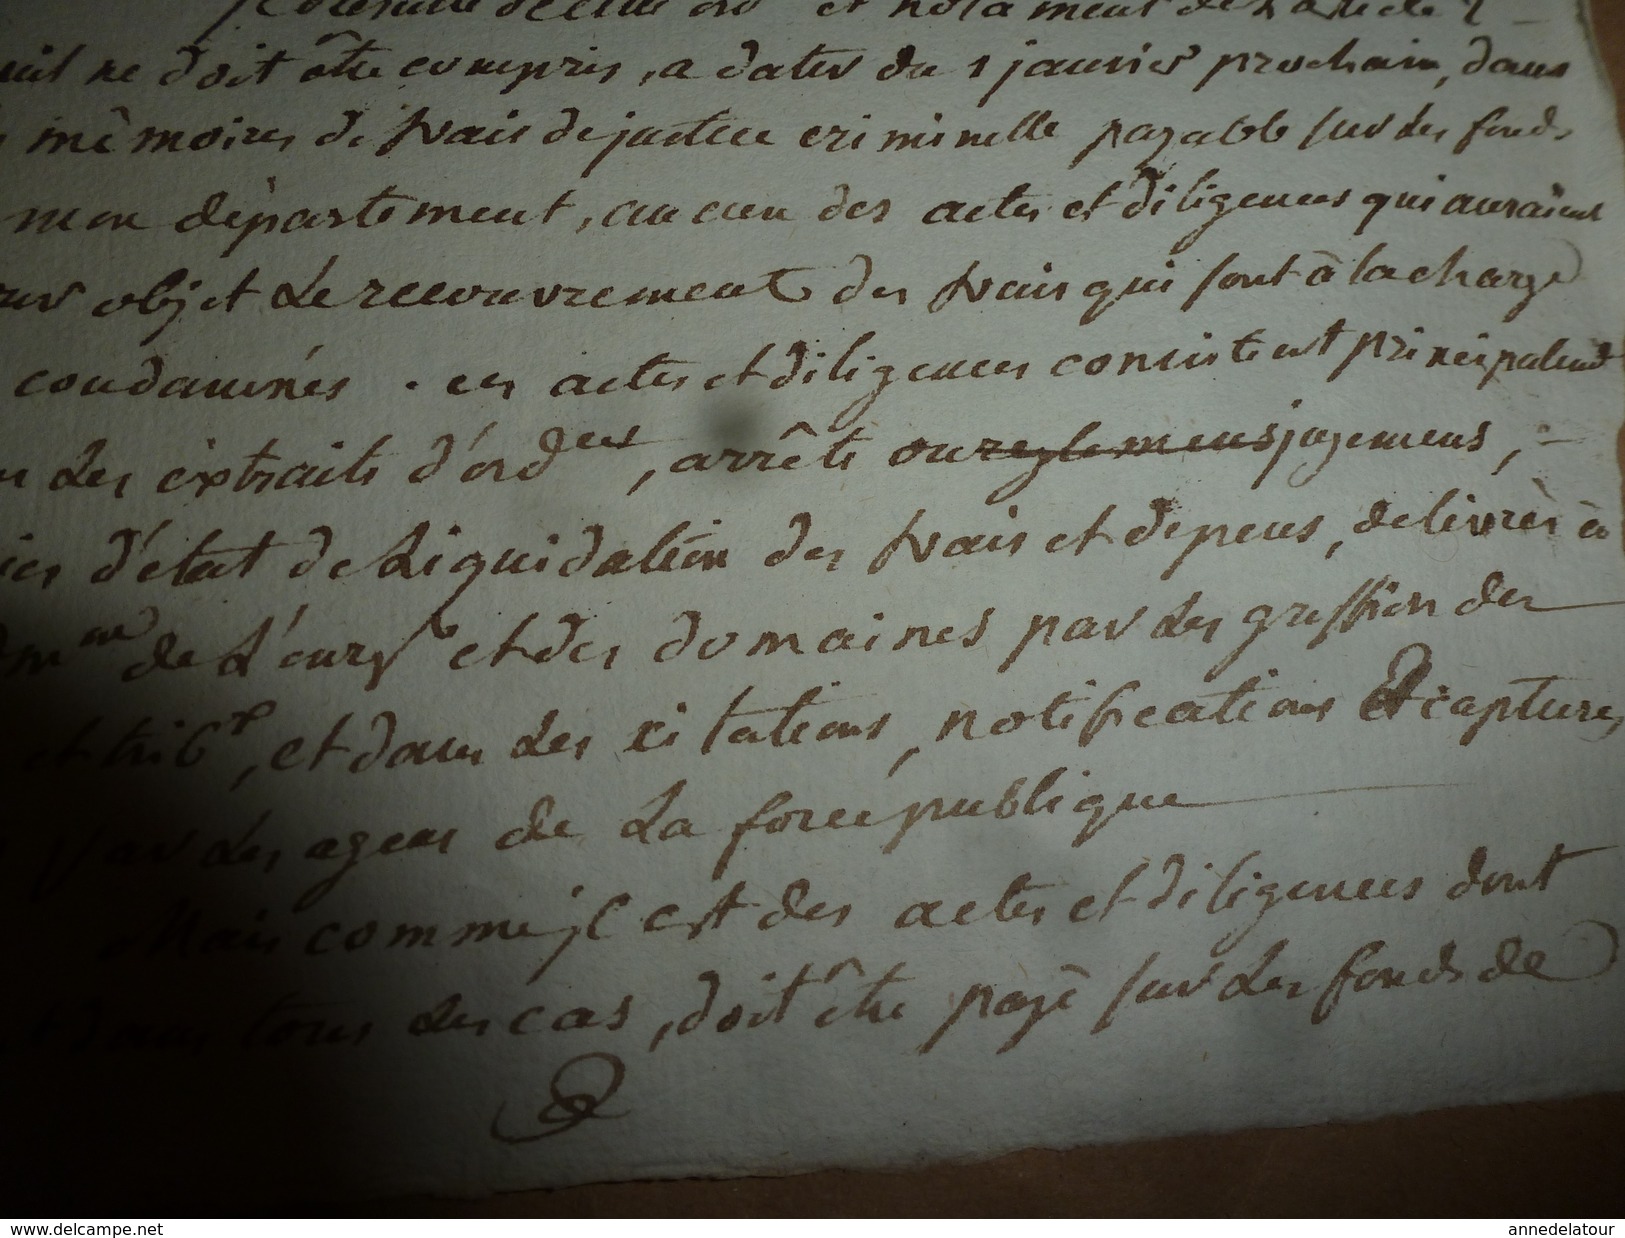 de cette ord et notament de l'article 2
ne doit être compris, a dater du 1 janvier prochain, dans
mémoires de frais de justice criminelle payable sur les fonds
mon département, aucun des actes et diligences qui auraient
objet le recouvrement des frais qui sont à la charge
condamnés. ces actes et diligences consistent principalemt
les éxtraits d'ordces, arrêts ou reglemens jugemens,
d'état de Liquidation des frais et depens, delivrés à
de L'euregt et des domaines par les greffiers des
et tribx, et dans les citations, notifications Et captures
par les agens de La force publique
Mais comme il est des actes et diligences dont
dans tous les cas, doit être payé sur les fonds de
www.delcampe.net
annedelatour